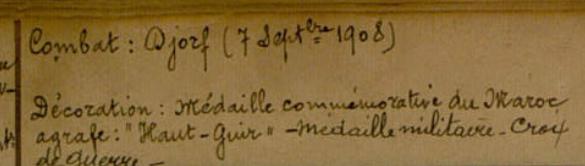 Combat : Djorf (7 Septbre 1908)
Décoration : Médaille commémorative du Maroc
agrafe : "Haut-Guir" - médaille militaire - Croix
de guerre -